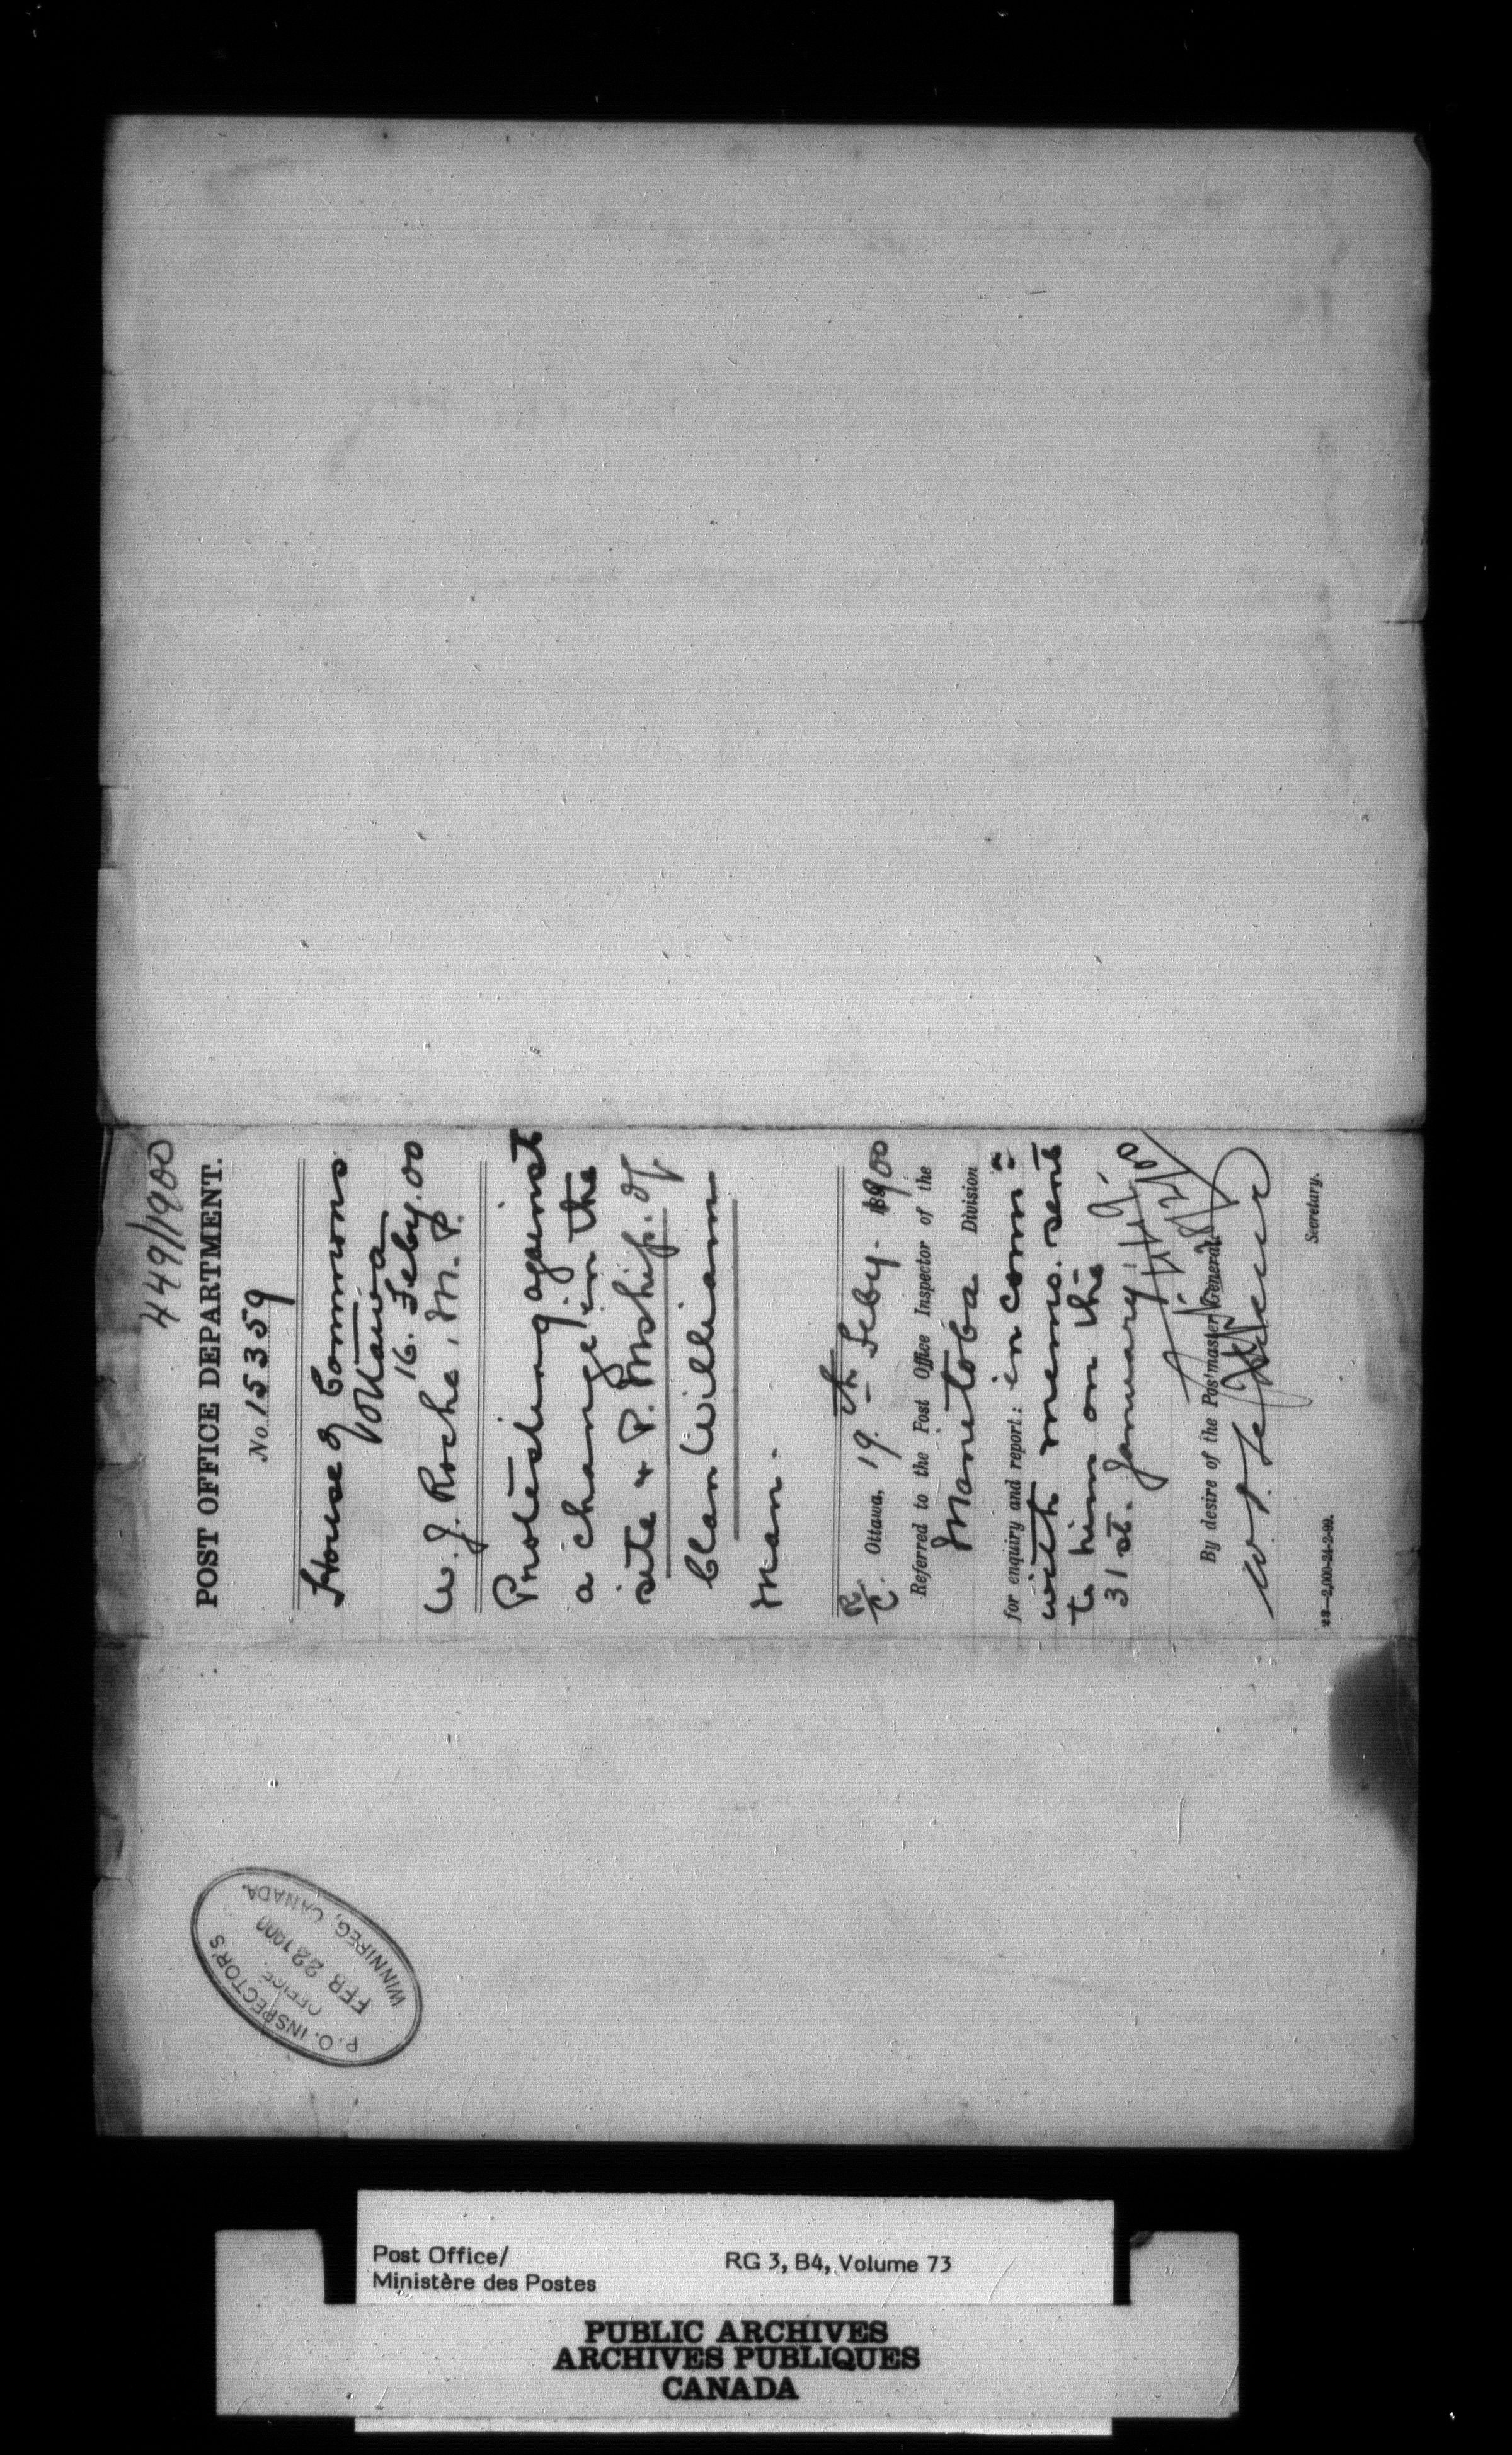 449/1900
POST OFFICE DEPARTMENT.
No. 15359
House of Commons
Ottawa
16. Feby. 00
W. J. Roche, M. P.
Protesting against
a change in the
site & P. Mship. of
Clan William
Man.
R/C. Ottawa, 19th Feby. 1900
Referred to the Post Office Inspector of the
Manitoba Division
for enquiry and report: in conn:n
with memo. sent
to him on the
31st. January.
By desire of the Postmaster General.
Secretary.
23—2,000-24-2-99.
P.O. INSPECTOR'S
OFFICE.
FEB 22 1900
WINNIPEG, CANADA.
Post Office/
Ministère des Postes
RG 3, B4, Volume 73
PUBLIC ARCHIVES
ARCHIVES PUBLIQUES
CANADA